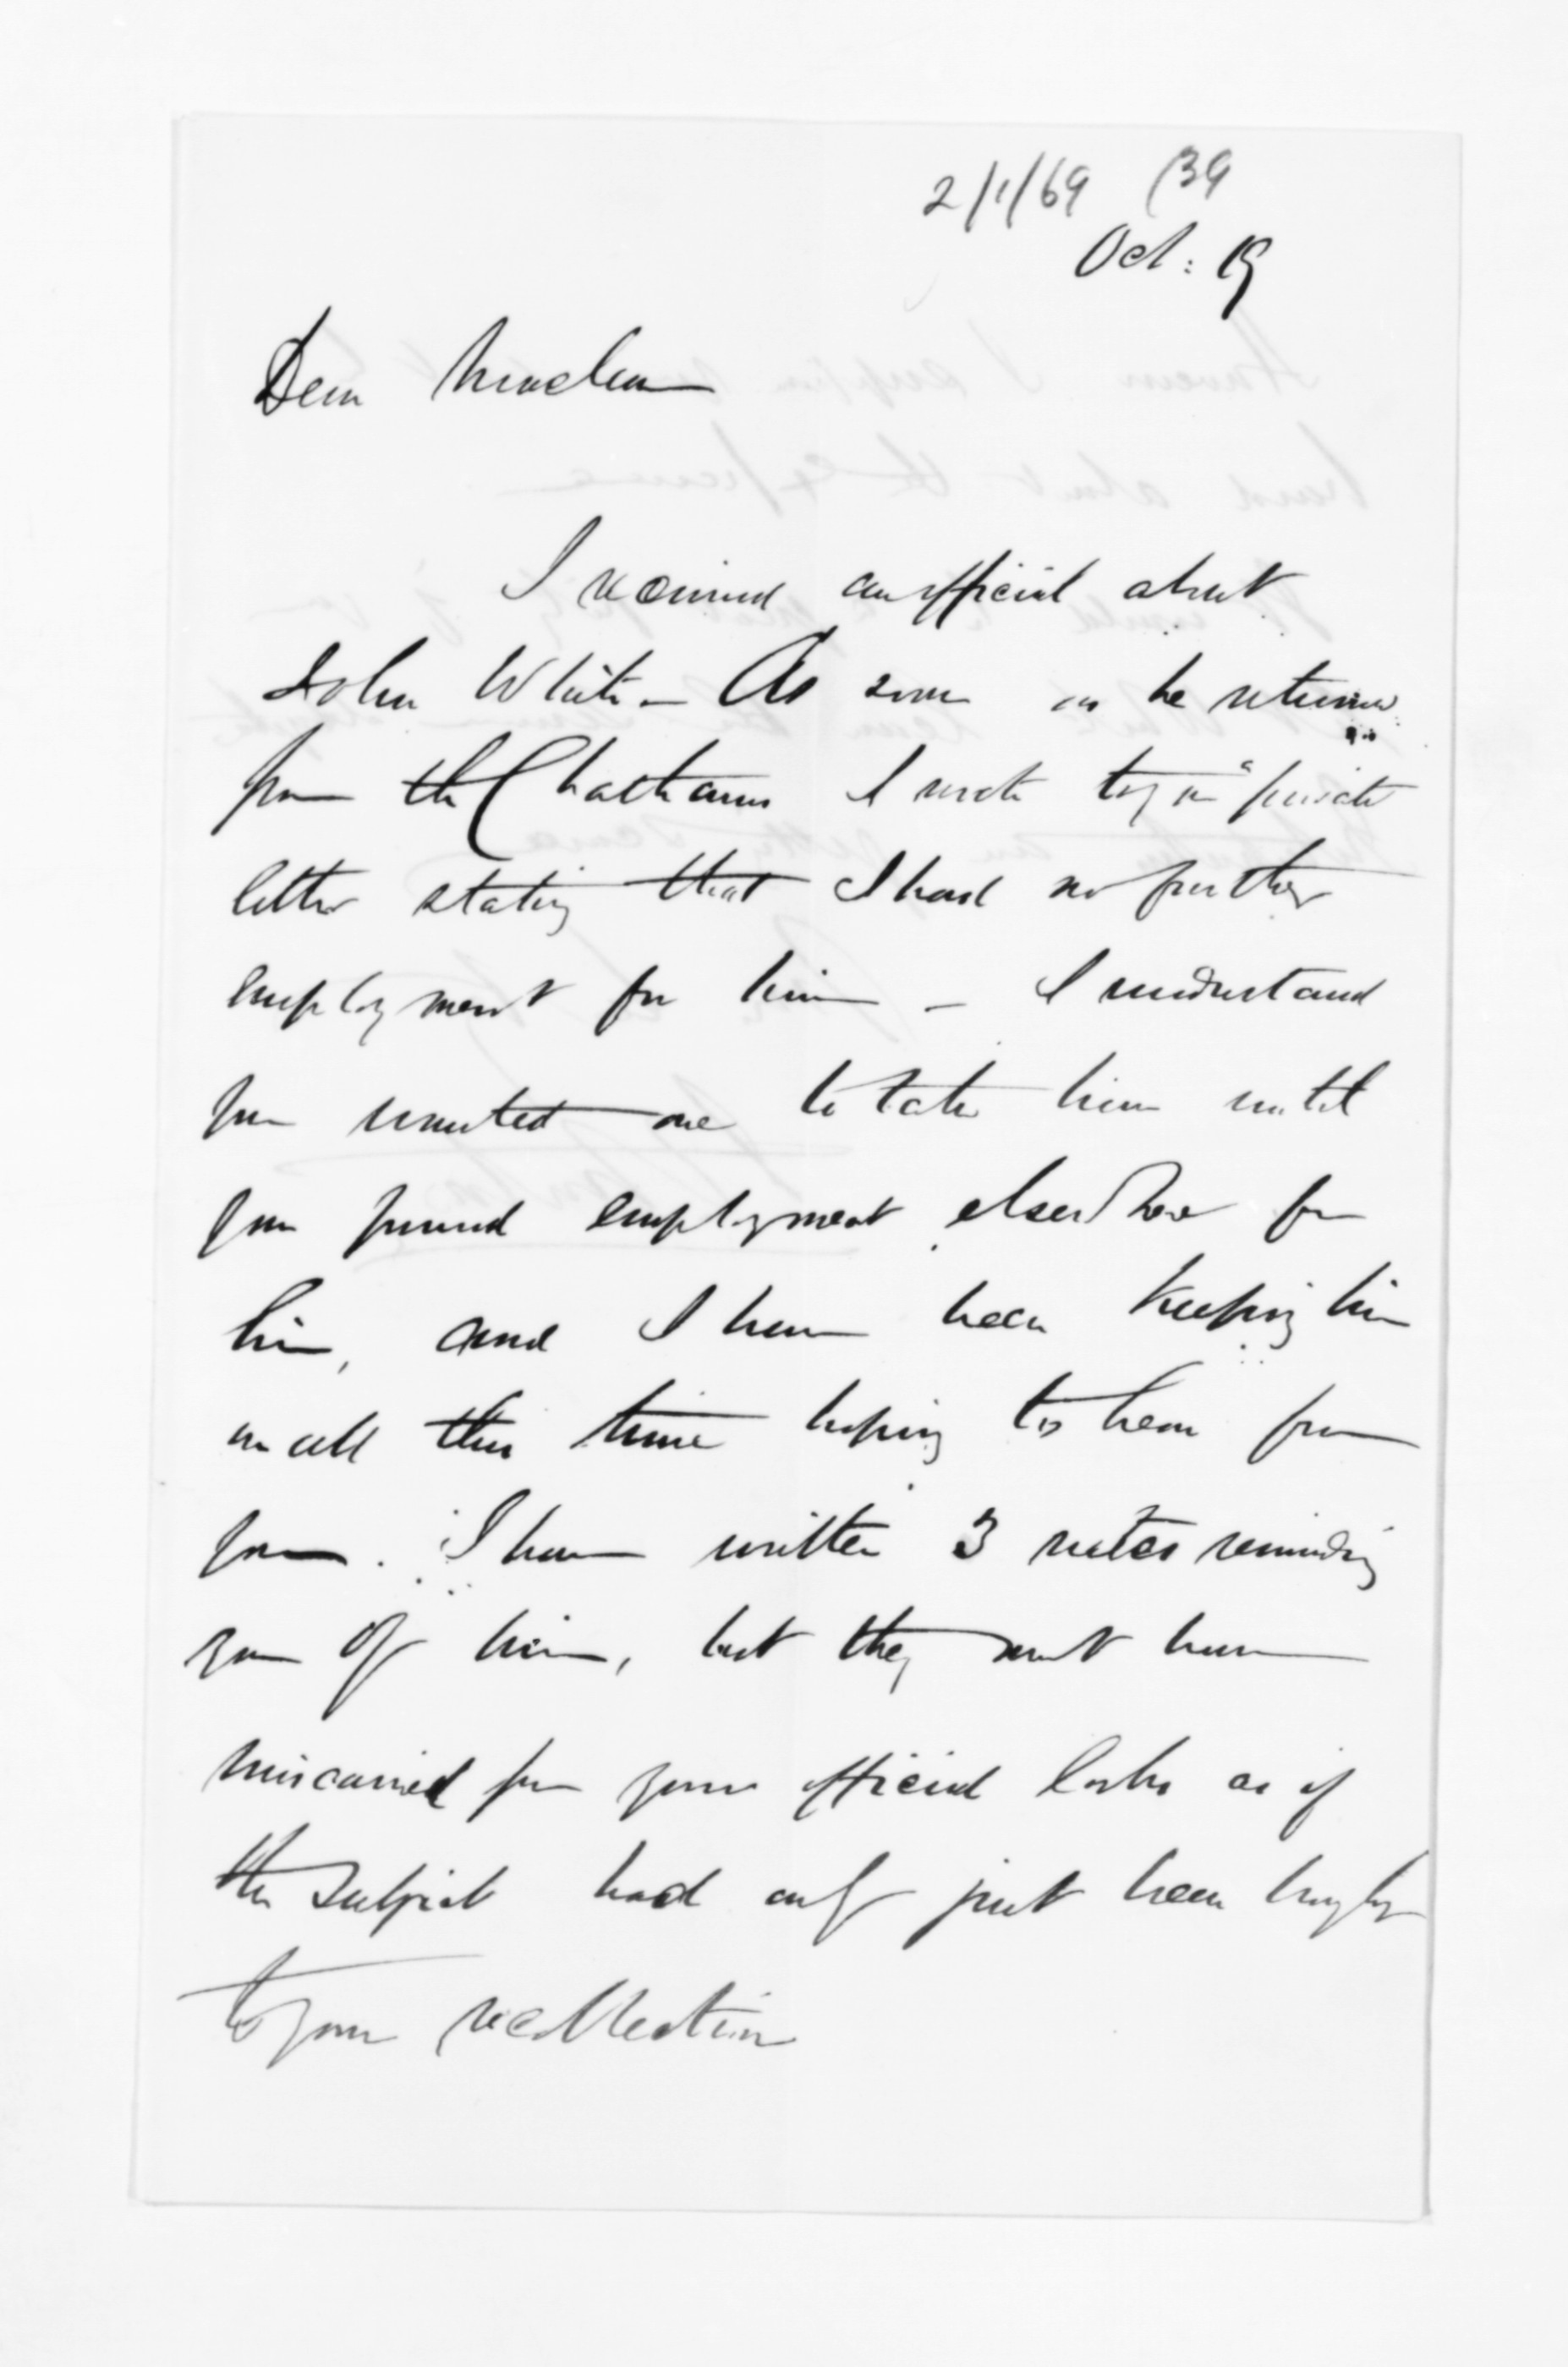 2/1/69 (39
Oct: 19
Dear Maclean
I received an official about
John White - As soon as he returned
from the Chathams I wrote to you a private
letter stating that I had no further
employment for him - I understand
you wanted me to take him until
you found employment elsewhere for
him, and I have been keeping him
on all this time hoping to hear from
you. I have written 3 notes reminding
you of him, but they must have
miscarried for your official looks as if
the subject had only just been brought
to your recollection